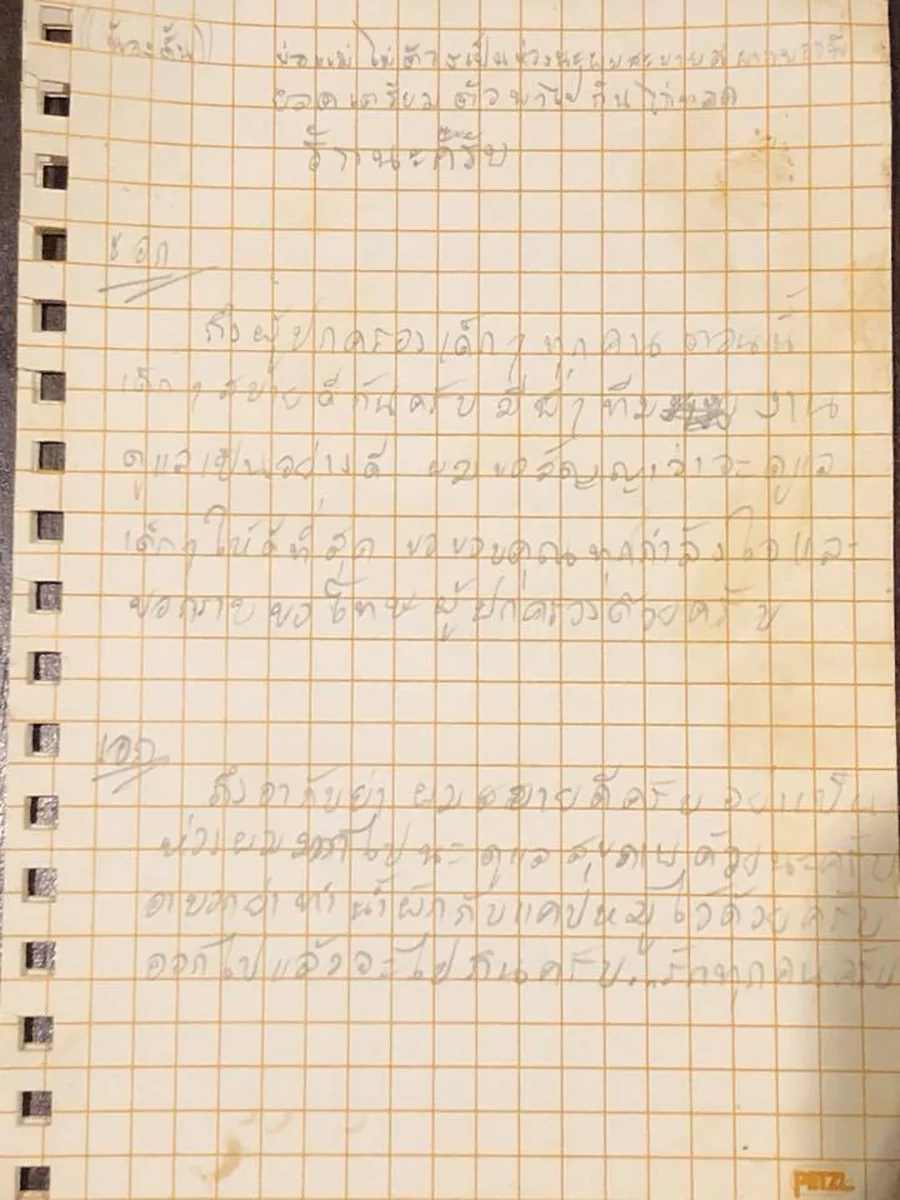 (น้องตั้น) พ่อแม่ ไม่ต้องเป็นห่วงนะผมสบายดี
ยอดเตรียมตัวพาไปกินไก่ทอด
ด้วยนะครับ
ถึงผู้ปกครองเด็กๆ ทุกคน ตอนนี้
เด็กๆ สบายดีกันครับ มีพี่ๆ ทีม งาน
ดูแลเป็นอย่างดี ผมขอสัญญาว่าจะดูแล
เด็กๆ ให้ดีที่สุด ขอขอบคุณทุกกำลังใจ และ
ขอกราบขอโทษ ผู้ปกครองด้วยครับ
เอก
ถึงอากับย่า ผมสบายดีครับ อย่าเป็น
ห่วงผม ไปนะ ดูแล สุขภาพด้วยนะครับ
อาบอกย่าทำน้ำผักกับแคปหมูไว้ด้วยครับ
ออกไปแล้วจะไปกินครับ...รักทุกคนครับ
PETZL